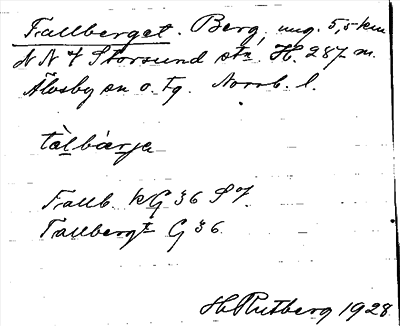 Tallberget. Berg, ung. 5,5 km
NNV Storsund stn. H. 287 m.
Älvsby sn o. tg. Norrb. l.
tàlbærjə
Tallb. KG 36 SV.
Tallbergt G 36.
H Rutberg 1928